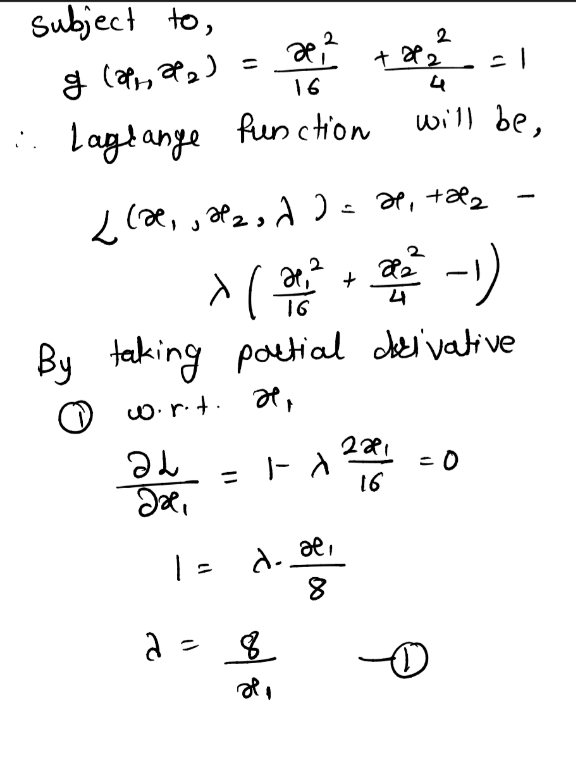 subject to,
g (x₁, x₂) = x₁²/16 + x₂²/4 = 1
∴ Lagrange function will be,
L (x₁, x₂, λ) = x₁ + x₂ -
λ ( x₁²/16 + x₂²/4 - 1)
By taking partial derivative
① w.r.t. x₁
∂L/∂x₁ = 1 - λ 2x₁/16 = 0
1 = λ. x₁/8
λ = 8/x₁ —①